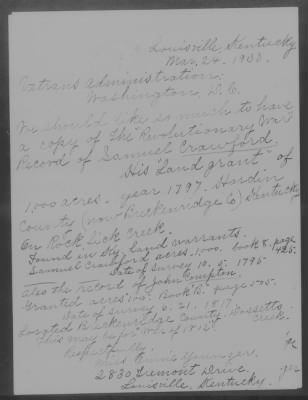 Louisville, Kentucky
Mar. 24. 1933.
Vetrans Administration;
Washington, D.C.
We should like so much to have
a copy of the "Revolutionary War"
Record of Samuel Crawford.
His "Land grant" of
1000 acres. year 1797. Hardin
County (now Breckenridge Co) Kentucky
On Rock Lick Creek.
Found in Ky. land warrants.
Samuel Crawford acres, 1000. book 8. page 425.
Date of survey 10. 5. 1795
also the record of John Compton.
Granted acres 100. Book B. page 545.
Date of survey 6. 21. 1817.
Located Breckenridge County. Dossetts Creek.
This may be for War of 1812.
Respectfully,
Miss Annie Younger.
2830 Tremont Drive.
Louisville, Kentucky.